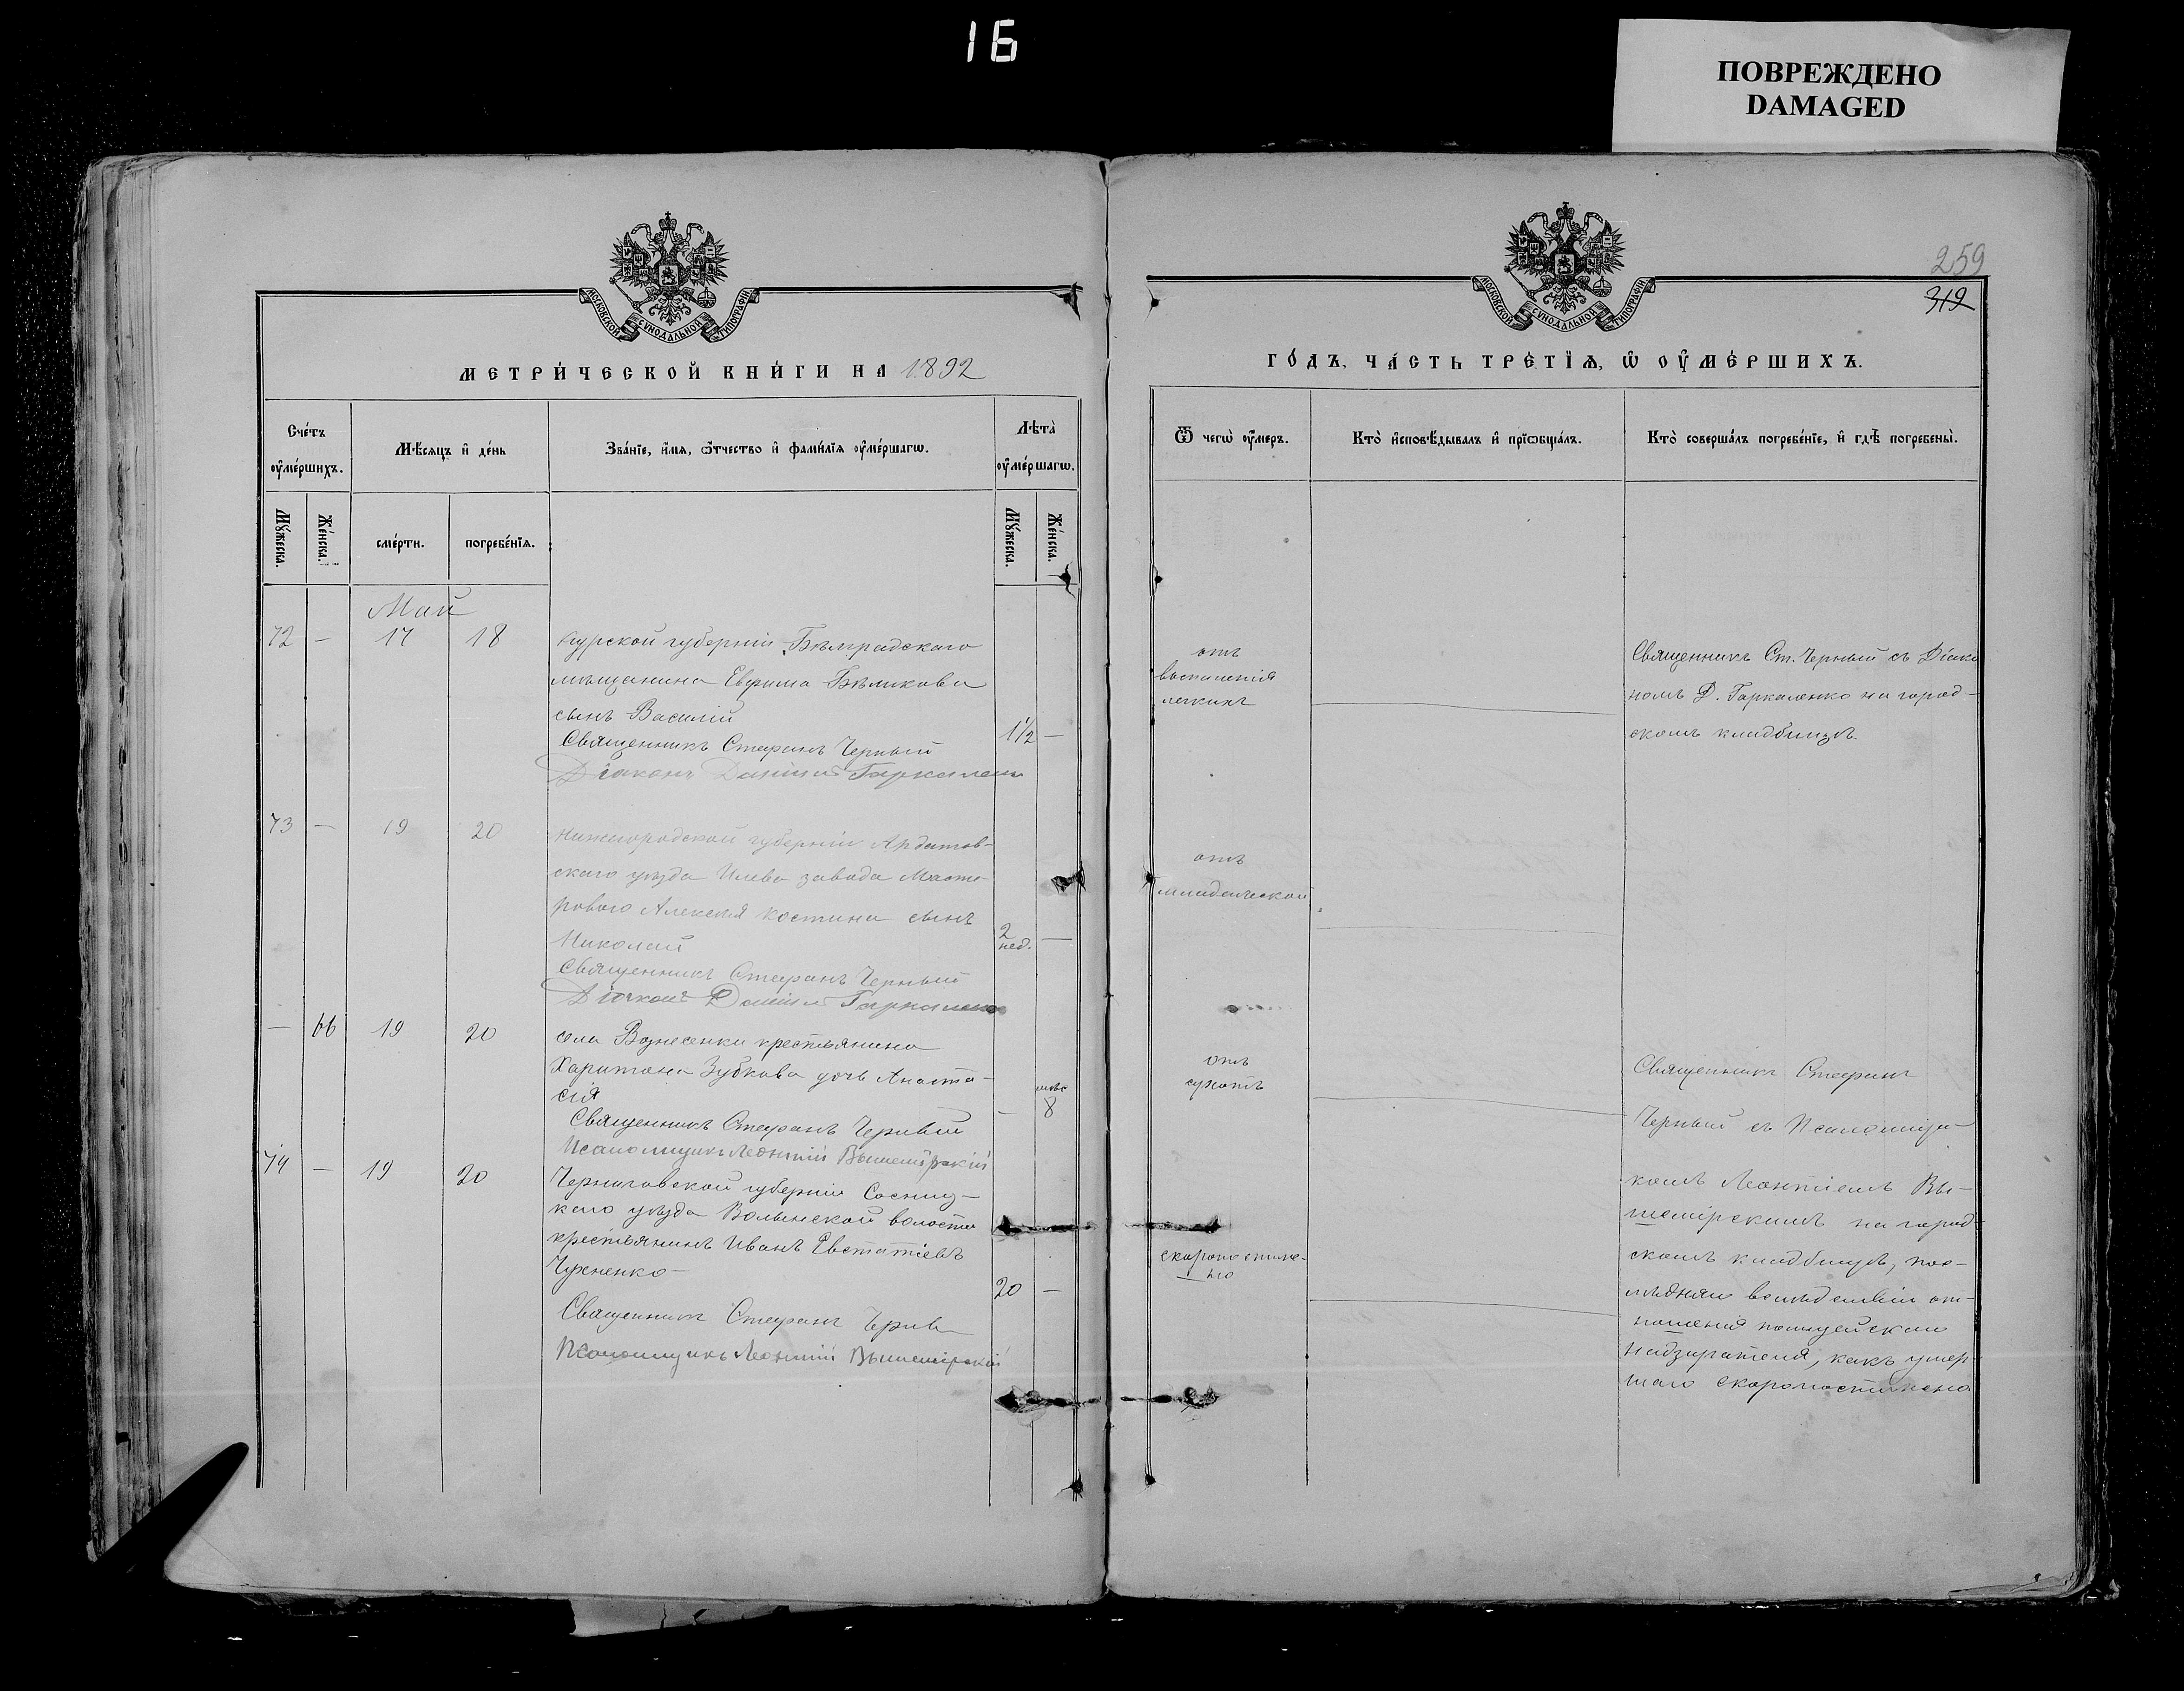 16
ПОВРЕЖДЕНО
DAMAGED
МОСКОВСКОЙ СѴНОДАЛЬНОЙ ТИПОГРАФІИ
МЕТРИ́ЧЕСКОЙ КНИ́ГИ НА 1892
Сче́тъ оу҆ме́ршихъ.
Мѣ́сяцъ и҆ де́нь
Зва́нїе, и҆́мѧ, ѻ҆́тчество и҆ фами́лїѧ оу҆ме́ршагѡ.
Лѣ́та оу҆ме́ршагѡ.
Мꙋ́жеска.
Же́нска.
сме́рти.
погребе́нїѧ.
Мꙋ́жеска.
Же́нска.
Май
72 — 17 18 Курской губерніи Бѣлградскаго
мѣщанина Евфима Бѣликова
сынъ Василій
1½ —
Священникъ Стефанъ Черный
Діаконъ Даніилъ Гаркаленко
73 — 19 20 Нижегородской губерніи Ардатов-
скаго уѣзда Илева завода Масте-
рового Алексѣя Костина сынъ
Николай
2 нед. —
Священникъ Стефанъ Черный
Діаконъ Даніилъ Гаркаленко
— 66 19 20 села Вознесенки крестьянина
Харитона Зубкова дочь Анаста-
сія
— мѣс 8
Священникъ Стефанъ Черный
Псаломщикъ Леонтій Вышемірскій
74 — 19 20 Черниговской губерніи Сосниц-
каго уѣзда Волынской волости
крестьянинъ Иванъ Евстатіевъ
20 —
Священникъ Стефанъ
Псаломщикъ Леонтій Вышемірскій
МОСКОВСКОЙ СѴНОДАЛЬНОЙ ТИПОГРАФІИ
259
319
ГО́ДЪ, ЧА́СТЬ ТРЕ́ТЇѦ, Ѡ҆ ОУ҆МЕ́РШИХЪ.
Ѿ чегѡ̀ оу҆́меръ.
Кто̀ и҆сповѣ́дывалъ и҆ прїѡбща́лъ.
Кто̀ соверша́лъ погребе́нїе, и҆ гдѣ̀ погребены̀.
отъ
воспаленія
легкихъ
Священникъ Ст. Черный съ Діако
номъ Д. Гаркаленко на город-
скомъ кладбищѣ.
отъ
младенческой
отъ
сухотъ
Священникъ Стефанъ
Черный съ Псаломщи
комъ Леонтіемъ Вы-
шемірскимъ на город-
скомъ кладбищѣ, пос-
лѣдняго вслѣдствіи от-
ношенія полицейскаго
надзирателя, какъ умер-
шаго скоропостижно
скоропостиж-
но